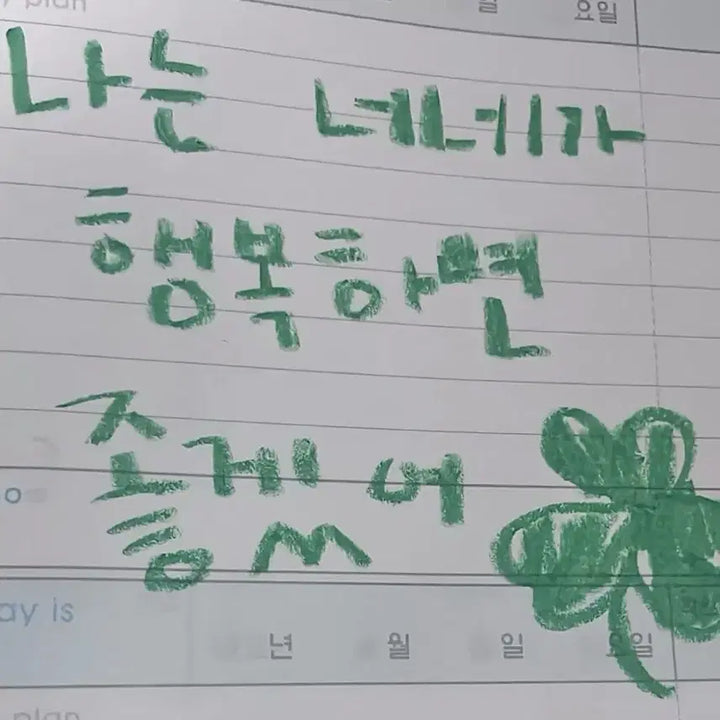 plan 일 요일
나는 네네가
행복하면
좋겠어
ay is 년 월 일 요일
plan